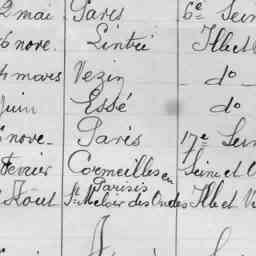 2 mai Paris 6e Sein
6 nove. Lintré Ille et
4 mars Vezin do
Juin Essé do
nove Paris 17e Sein
Fevrier Cormeilles en Parisis Seine et O
Août St Meloir des Ondes Ille et V